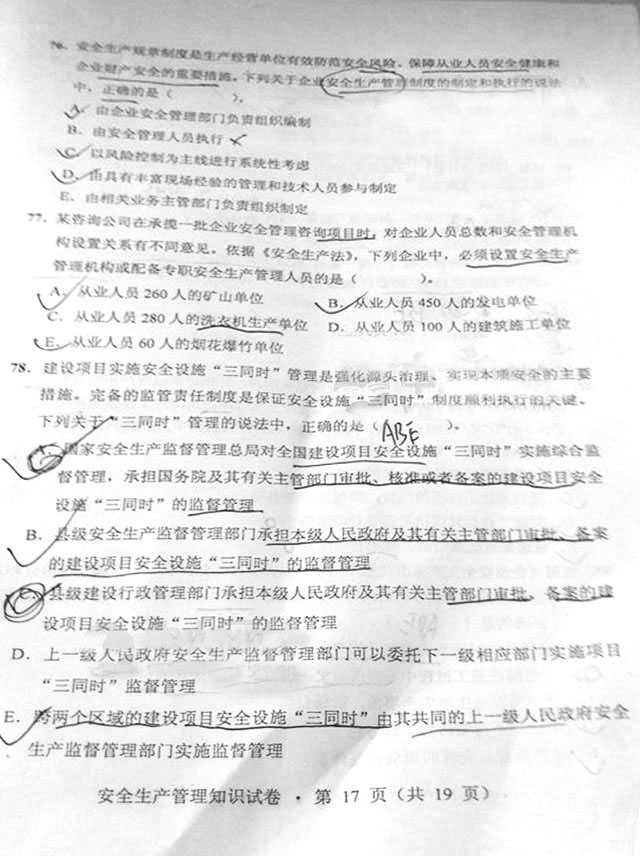 76. 安全生产规章制度是生产经营单位有效防范安全风险、保障从业人员安全健康和
企业财产安全的重要措施。下列关于企业安全生产管理制度的制定和执行的说法
中,正确的是( )。
A. 由企业安全管理部门负责组织编制
B. 由安全管理人员执行
C. 以风险控制为主线进行系统性考虑
D. 由具有丰富现场经验的管理和技术人员参与制定
E. 由相关业务主管部门负责组织制定
77. 某咨询公司在承揽一批企业安全管理咨询项目时,对企业人员总数和安全管理机
构设置关系有不同意见。依据《安全生产法》,下列企业中,必须设置安全生产
管理机构或配备专职安全生产管理人员的是( )。
A. 从业人员 260 人的矿山单位 B. 从业人员 450 人的发电单位
C. 从业人员 280 人的洗衣机生产单位 D. 从业人员 100 人的建筑施工单位
E. 从业人员 60 人的烟花爆竹单位
78. 建设项目实施安全设施“三同时”管理是强化源头治理、实现本质安全的主要
措施。完备的监管责任制度是保证安全设施“三同时”制度顺利执行的关键。
下列关于“三同时”管理的说法中,正确的是( ABE )。
国家安全生产监督管理总局对全国建设项目安全设施“三同时”实施综合监
督管理,承担国务院及其有关主管部门审批、核准或者备案的建设项目安全
设施“三同时”的监督管理
B. 县级安全生产监督管理部门承担本级人民政府及其有关主管部门审批、备案
的建设项目安全设施“三同时”的监督管理
C. 县级建设行政管理部门承担本级人民政府及其有关主管部门审批、备案的建
设项目安全设施“三同时”的监督管理
D. 上一级人民政府安全生产监督管理部门可以委托下一级相应部门实施项目
“三同时”监督管理
E. 跨两个区域的建设项目安全设施“三同时”由其共同的上一级人民政府安全
生产监督管理部门实施监督管理
安全生产管理知识试卷 · 第 17 页(共 19 页)